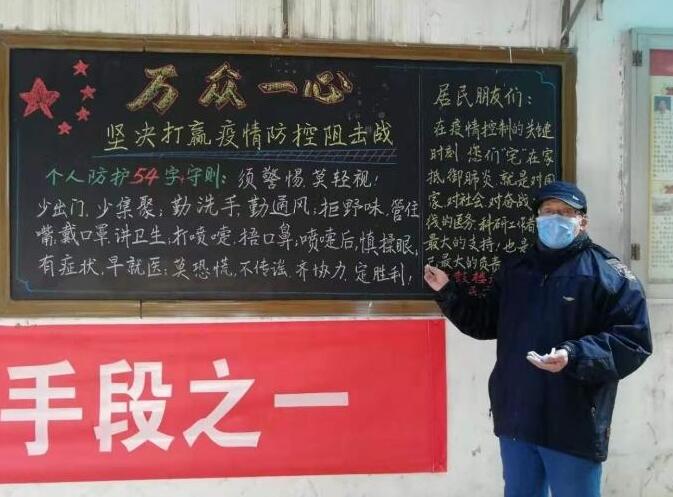 万众一心
坚决打赢疫情防控阻击战
个人防护54字守则：须警惕，莫轻视！
少出门，少集聚；勤洗手，勤通风；拒野味，管住
嘴；戴口罩，讲卫生；打喷嚏，捂口鼻；喷嚏后，慎揉眼，
有症状，早就医；莫恐慌，不传谣，齐协力，定胜利！
居民朋友们：
在疫情控制的关键
时刻，您们“宅”在家
抵御肺炎，就是对国
家，对社会，对奋战
线的医务，科研工
最大的支持！也是
最大的负责
手段之一